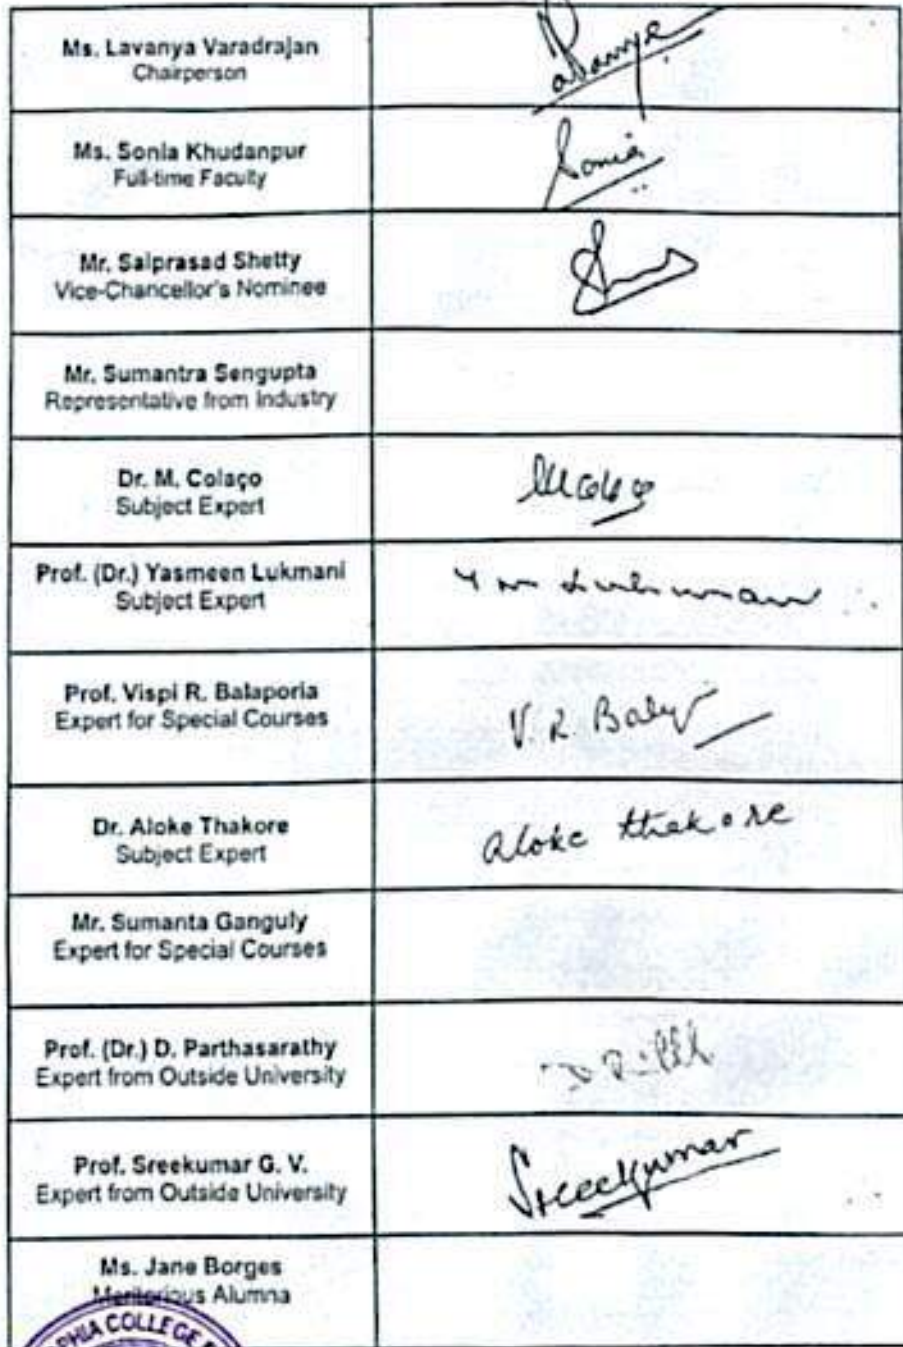 Ms. Lavanya Varadrajan
Chairperson
Lavanya
Ms. Sonia Khudanpur
Full-time Faculty
Sonia
Mr. Saiprasad Shetty
Vice-Chancellor's Nominee
Mr. Sumantra Sengupta
Representative from Industry
Dr. M. Colaço
Subject Expert
MColaço
Prof. (Dr.) Yasmeen Lukmani
Subject Expert
Prof. Vispi R. Balaporia
Expert for Special Courses
V. R. Bala
Dr. Aloke Thakore
Subject Expert
Aloke Thakore
Mr. Sumanta Ganguly
Expert for Special Courses
Prof. (Dr.) D. Parthasarathy
Expert from Outside University
Prof. Sreekumar G. V.
Expert from Outside University
Sreekumar
Ms. Jane Borges
Meritorious Alumna
PHIA COLLEGE